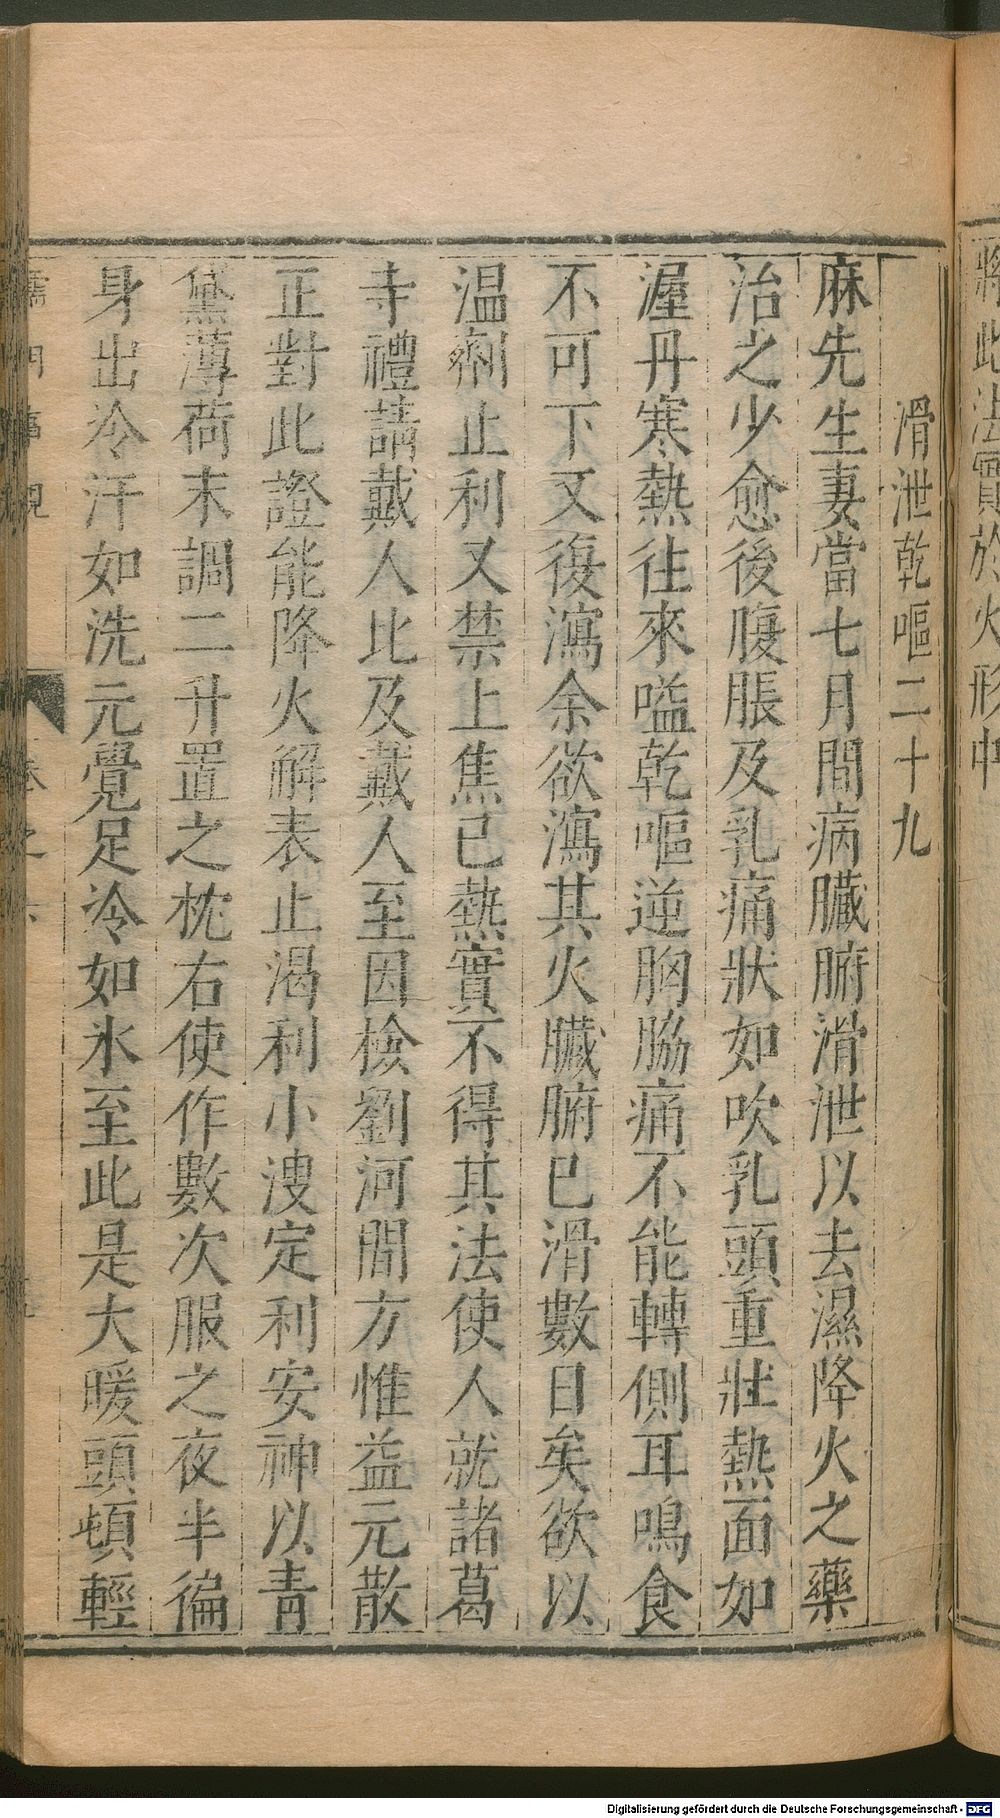 將此法實於火形中
滑泄乾嘔二十九
麻先生妻當七月間病臟腑滑泄以去濕降火之藥
治之少愈後腹脹及乳痛狀如吹乳頭重壯熱面如
渥丹寒熱往來嗌乾嘔逆胸脇痛不能轉側耳鳴食
不可下又復瀉余欲瀉其火臟腑已滑數日矣欲以
温劑止利又禁上焦已熱實不得其法使人就諸葛
寺禮請戴人比及戴人至因檢劉河間方惟益元散
正對此證能降火解表止渴利小溲定利安神以青
黛薄荷末調二升置之枕右使作數次服之夜半徧
身出冷汗如洗元覺足冷如氷至此足大暖頭頓輕
儒門事親
卷之六
Digitalisierung gefördert durch die Deutsche Forschungsgemeinschaft - DFG